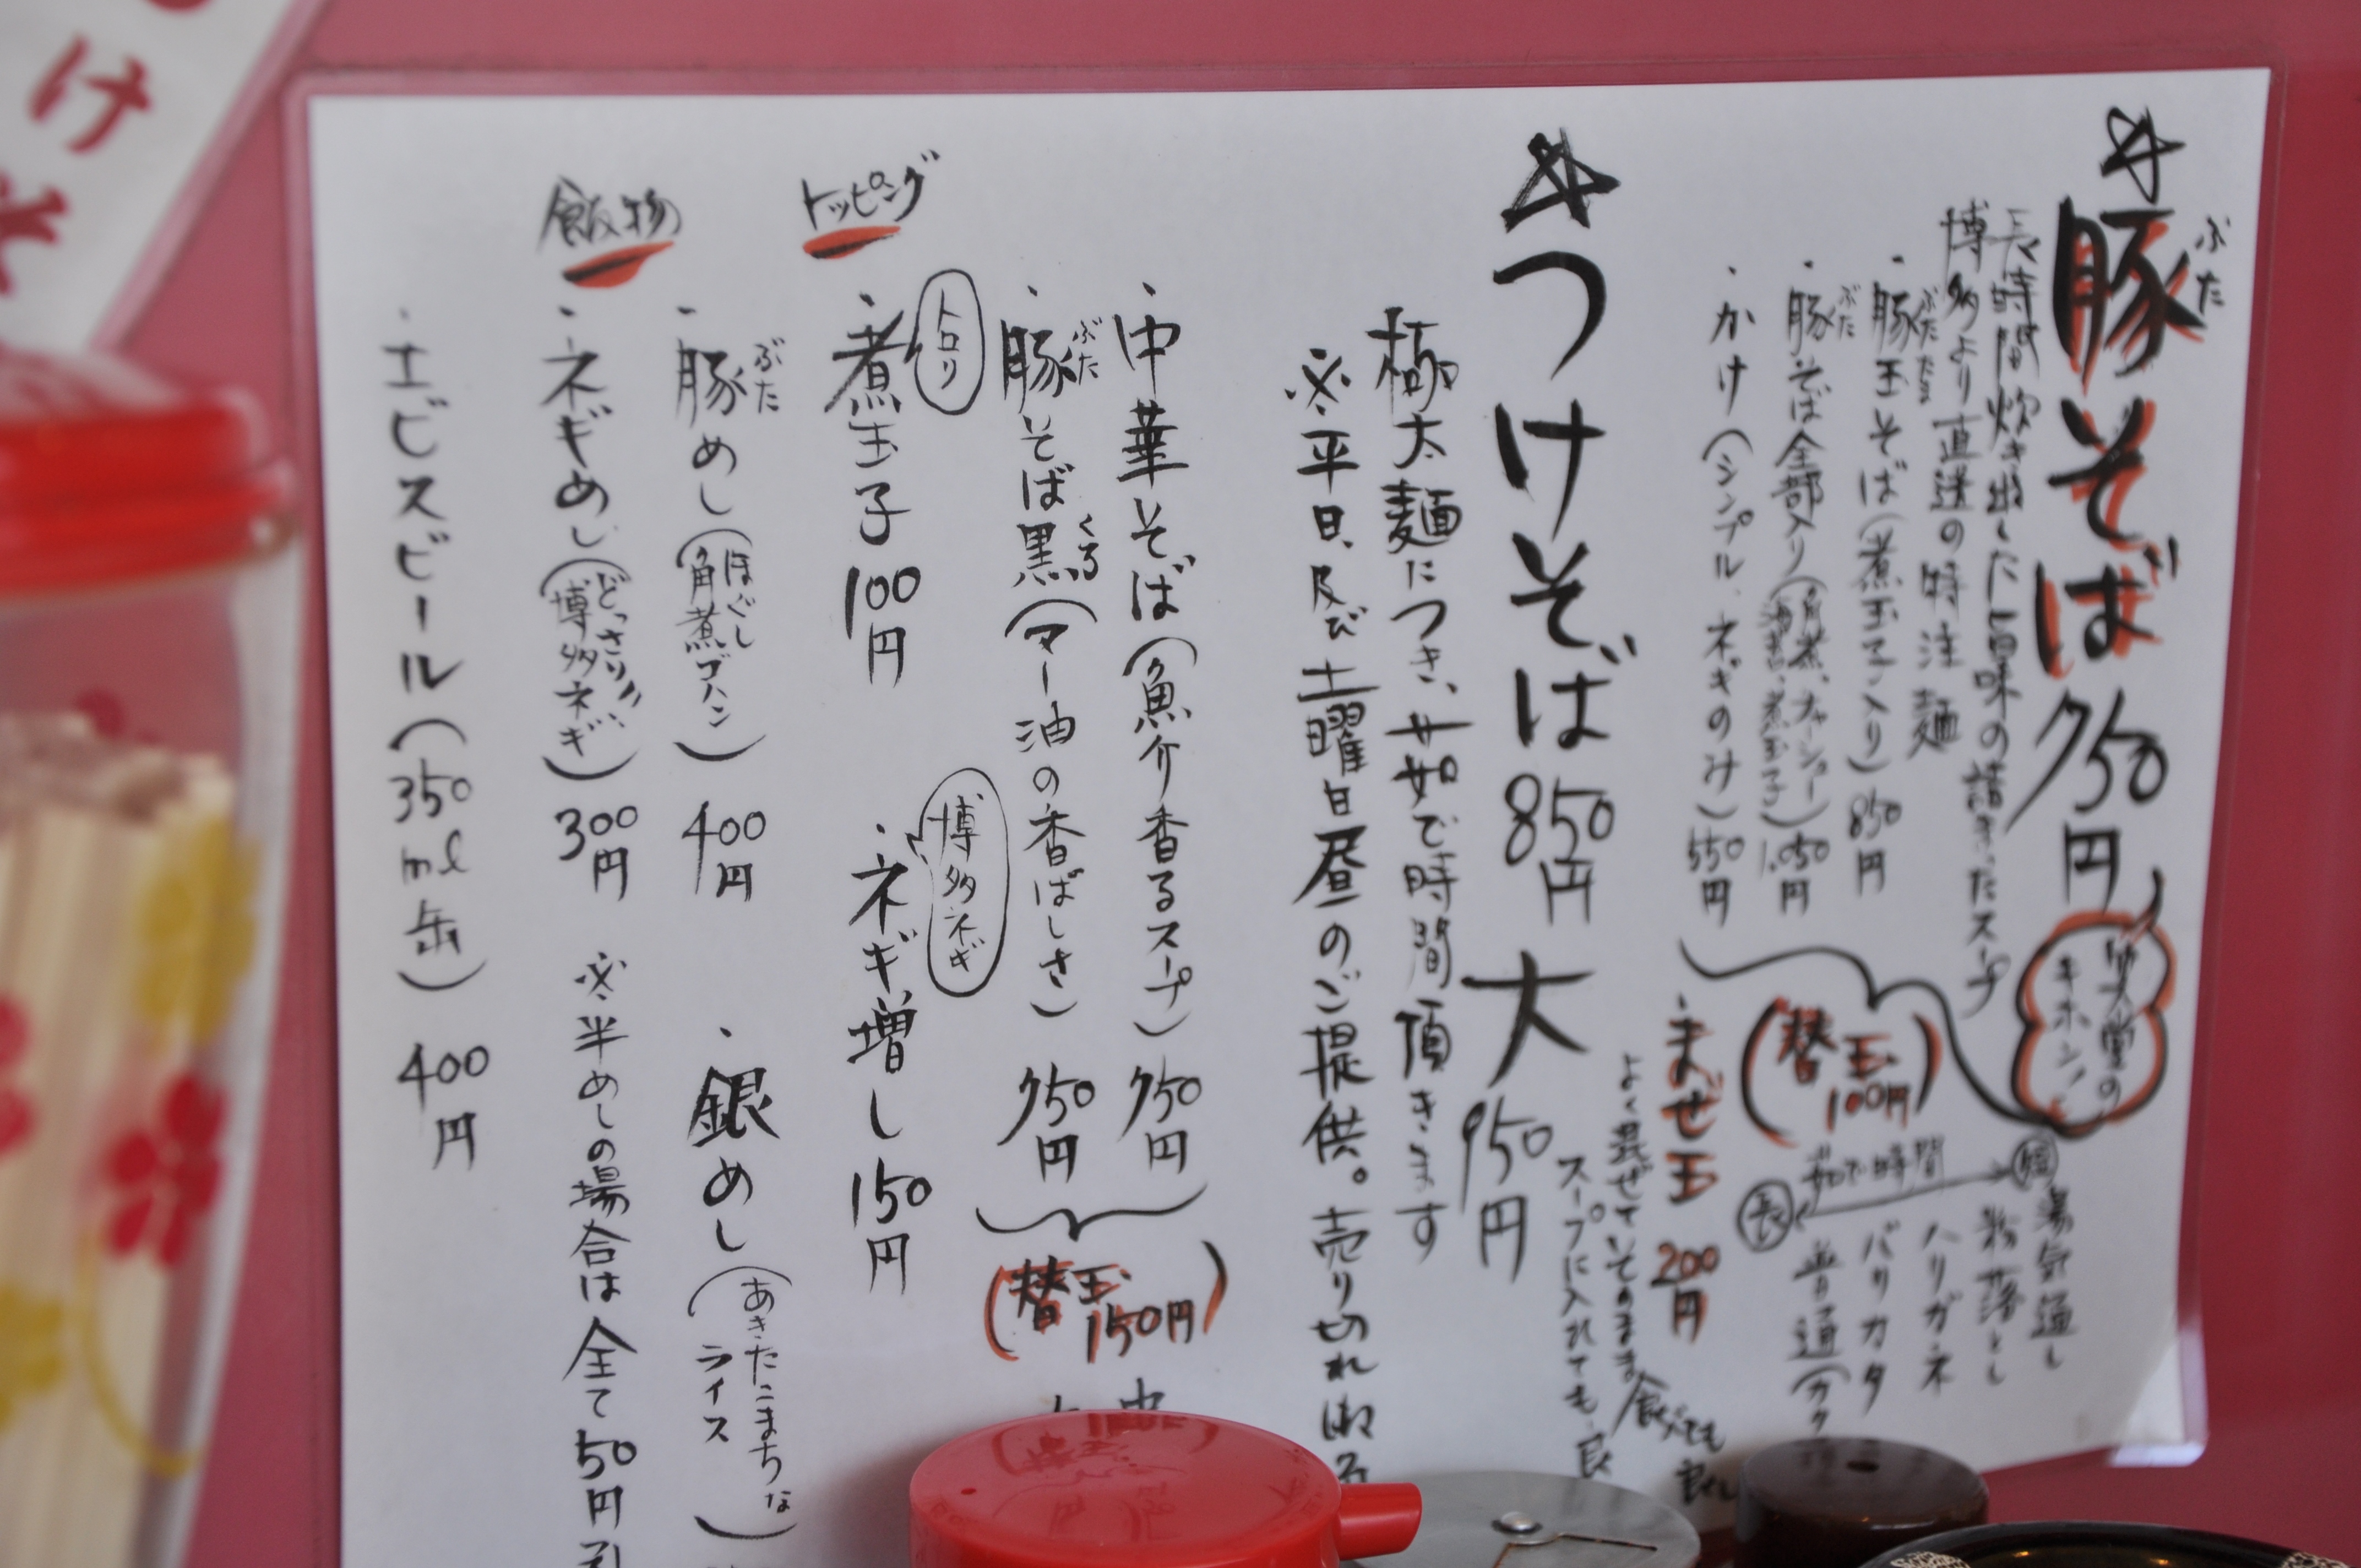 ☆豚そば 750円
ぶた
長時間炊き出した旨味の詰まったスープ
博多より直送の特注麺
・豚玉そば(煮玉子入り) 850円
ぶたたま
・豚そば全部入り(角煮、チャーシュー 海苔、煮玉子) 1,050円
ぶた
・かけ(シンプル、ネギのみ) 550円
笑堂の
キホン!
(替玉 100円)
茹で時間
短
長
湯気通し
粉落とし
ハリガネ
バリカタ
普通(カタ
・まぜ玉 200円
よく混ぜてそのまま食べても良し
スープに入れても良
☆つけそば 850円 大 950円
極太麺につき、茹で時間頂きます
※平日、及び土曜日昼のご提供。売り切れ御る
・中華そば(魚介香るスープ) 750円
・豚そば黒(マー油の香ばしさ) 750円
ぶた
くろ
(替玉 150円)
中
トッピング
・煮玉子 100円
トロリ
・ネギ増し 150円
博多ネギ
飯物
・豚めし(ほぐし角煮ゴハン) 400円
ぶた
・銀めし(あきたこまちな ライス)
・ネギめし(どっさり!! 博多ネギ) 300円
※半めしの場合は全て50円引
・エビスビール(350ml缶) 400円
け
そ